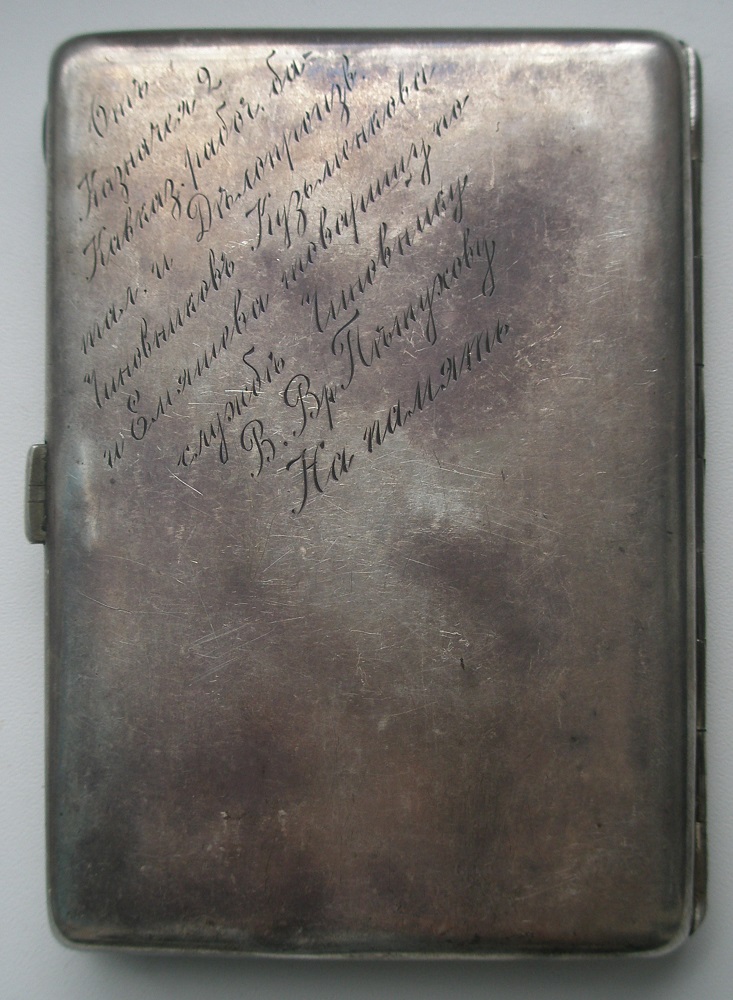 Отъ
Казначея 2
Кавказ. рабоч. ба-
тал. и Дѣлопроизв.
Чиновниковъ Кузьменкова
и Емяшева товарищу по
службѣ Чиновнику
В. Вр. Пѣтухову
На память